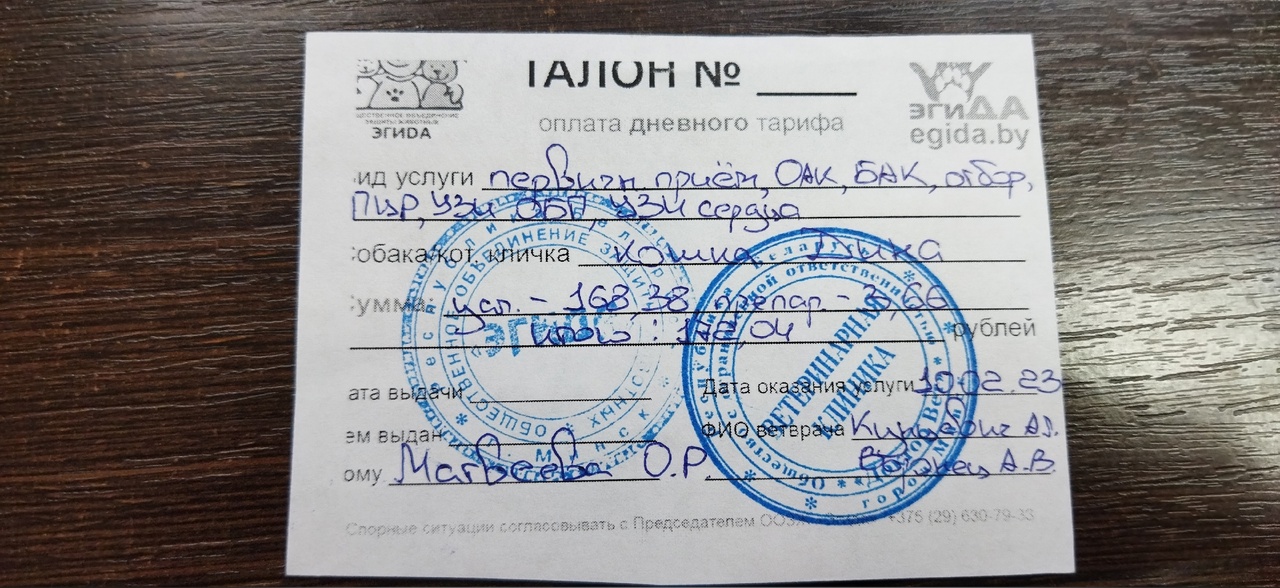 ТАЛОН №
ЩЕСТВЕННОЕ ОБЪЕДИНЕНИЕ
ЗАЩИТЫ ЖИВОТНЫХ
ЭГИДА
эгиДА
egida.by
оплата дневного тарифа
ид услуги первичн. приём, ОАК, БАК, отбор,
ПЦР, УЗИ ОБП, УЗИ сердца
обака/кот. кличка кошка Дика
умма: усл. - 168,38 препар. - 3,66
итого: 172,04 рублей
ата выдачи Дата оказания услуги 10.02.23
ем выдан ФИО ветврача
ому Матвеева О.Р. А.В.
Спорные ситуации согласовывать с Председателем +375 (29) 630-79-33
ЭГИДА
ВЕТЕРИНАРНАЯ
КЛИНИКА